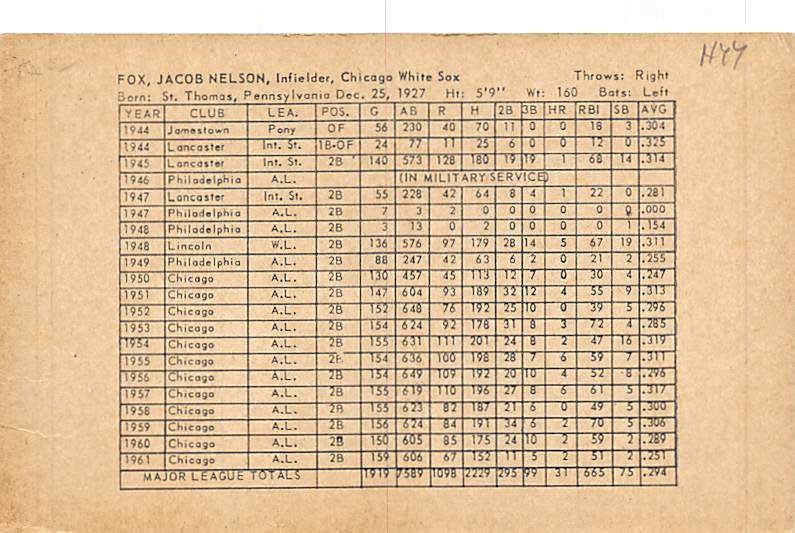 H44
FOX, JACOB NELSON, Infielder, Chicago White Sox Throws: Right
Born: St. Thomas, Pennsylvania Dec. 25, 1927 Ht: 5'9" Wt: 160 Bats: Left
YEAR CLUB LEA. POS. G AB R H 2B 3B HR RBI SB AVG
1944 Jamestown Pony OF 56 230 40 70 11 0 0 18 3 .304
1944 Lancaster Int. St. 1B-OF 24 77 11 25 6 0 0 12 0 .325
1945 Lancaster Int. St. 2B 140 573 128 180 19 19 1 68 14 .314
1946 Philadelphia A.L. (IN MILITARY SERVICE)
1947 Lancaster Int. St. 2B 55 228 42 64 8 4 1 22 0 .281
1947 Philadelphia A.L. 2B 7 3 2 0 0 0 0 0 0 .000
1948 Philadelphia A.L. 2B 3 13 0 2 0 0 0 0 1 .154
1948 Lincoln W.L. 2B 136 576 97 179 28 14 5 67 19 .311
1949 Philadelphia A.L. 2B 88 247 42 63 6 2 0 21 2 .255
1950 Chicago A.L. 2B 130 457 45 113 12 7 0 30 4 .247
1951 Chicago A.L. 2B 147 604 93 189 32 12 4 55 9 .313
1952 Chicago A.L. 2B 152 648 76 192 25 10 0 39 5 .296
1953 Chicago A.L. 2B 154 624 92 178 31 8 3 72 4 .285
1954 Chicago A.L. 2B 155 631 111 201 24 8 2 47 16 .319
1955 Chicago A.L. 2B 154 636 100 198 28 7 6 59 7 .311
1956 Chicago A.L. 2B 154 649 109 192 20 10 4 52 8 .296
1957 Chicago A.L. 2B 155 619 110 196 27 8 6 61 5 .317
1958 Chicago A.L. 2B 155 623 82 187 21 6 0 49 5 .300
1959 Chicago A.L. 2B 156 624 84 191 34 6 2 70 5 .306
1960 Chicago A.L. 2B 150 605 85 175 24 10 2 59 2 .289
1961 Chicago A.L. 2B 159 606 67 152 11 5 2 51 2 .251
MAJOR LEAGUE TOTALS 1919 7589 1098 2229 295 99 31 665 75 .294